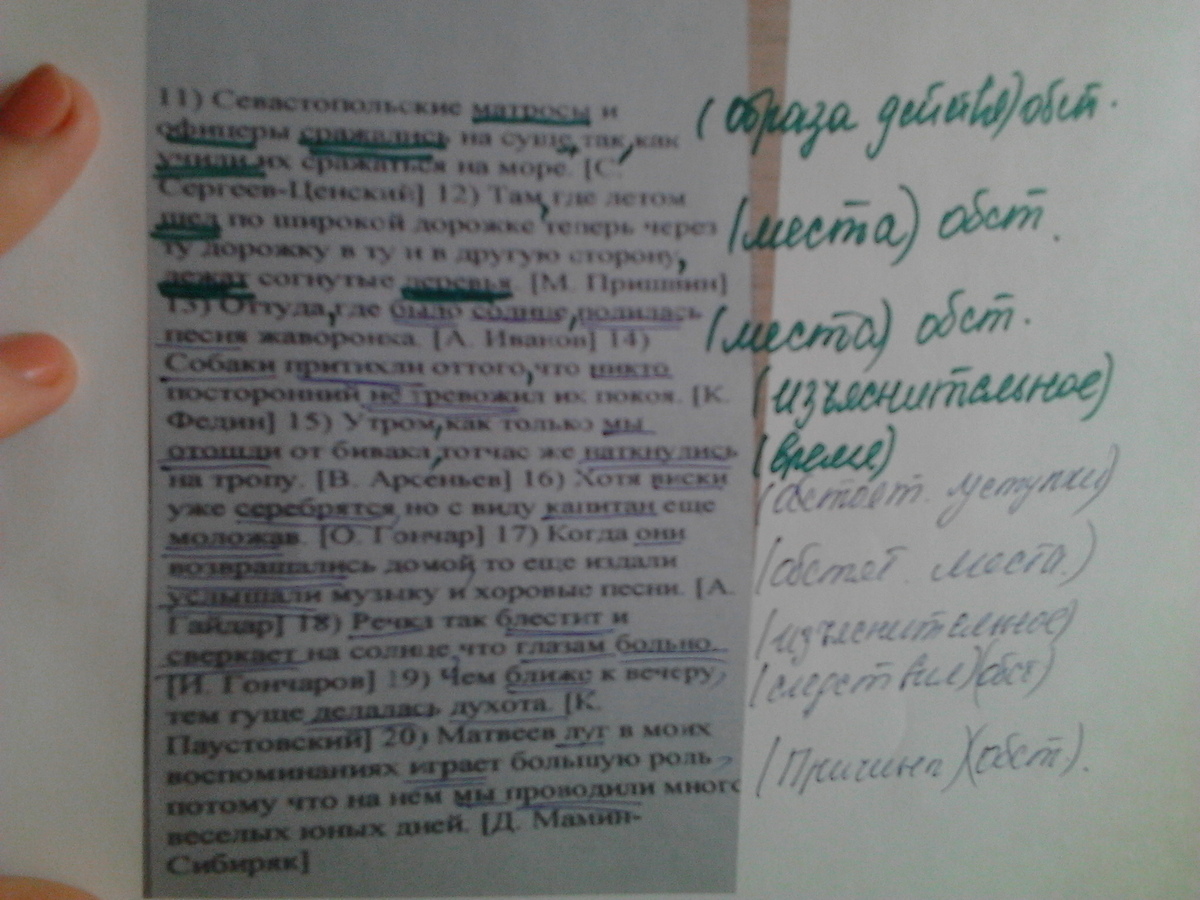 11) Севастопольские матросы и
офицеры сражались на суше, так, как
учили их сражаться на море. [С.
Сергеев-Ценский] 12) Там, где летом
шел по широкой дорожке теперь через
ту дорожку в ту и в другую сторону,
лежат согнутые деревья. [М. Пришвин]
13) Оттуда, где было солнце, родилась
песня жаворонка. [А. Иванов] 14)
Собаки притихли оттого, что никто
посторонний не тревожил их покоя. [К.
Федин] 15) Утром, как только мы
отошли от бивака, тотчас же наткнулись
на тропу. [В. Арсеньев] 16) Хотя виски
уже серебрятся, но с виду капитан еще
моложав. [О. Гончар] 17) Когда они
возвращались домой, то еще издали
услышали музыку и хоровые песни. [А.
Гайдар] 18) Речка так блестит и
сверкает на солнце, что глазам больно.
[И. Гончаров] 19) Чем ближе к вечеру,
тем гуще делалась духота. [К.
Паустовский] 20) Матвеев луг в моих
воспоминаниях играет большую роль,
потому что на нем мы проводили много
веселых юных дней. [Д. Мамин-
Сибиряк]
(образа действя) обст.
(места) обст.
(места) обст.
(изъяснительное)
(время)
уступки)
места.)
(изъяснительное)
(следствие)(обст)
(Причина)(обст).